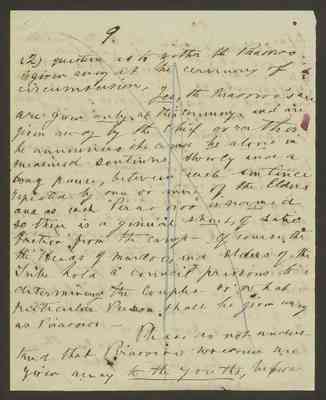 9.
(2) question is to whether the Piraroos
is given away at the ceremony of
circumcision, Yes, the Piraroos are
are given only at the ceremony, and are
given away by the Chief, or on this
he announces the names he alone in
measured sentences slowly and a
long pause, between each sentence
repeated by one or more of the Elders
and as each Piraroo is named
so there is a general shout, of satis
faction from the camp - of course, the
the Heads of murdoos, and Elders of the
Tribe hold a council previous to
determining the Couples or what
particular Person shall be given away
as Piaroos -
Please do not under
stand that Piraroos women are
given away to the youths, before